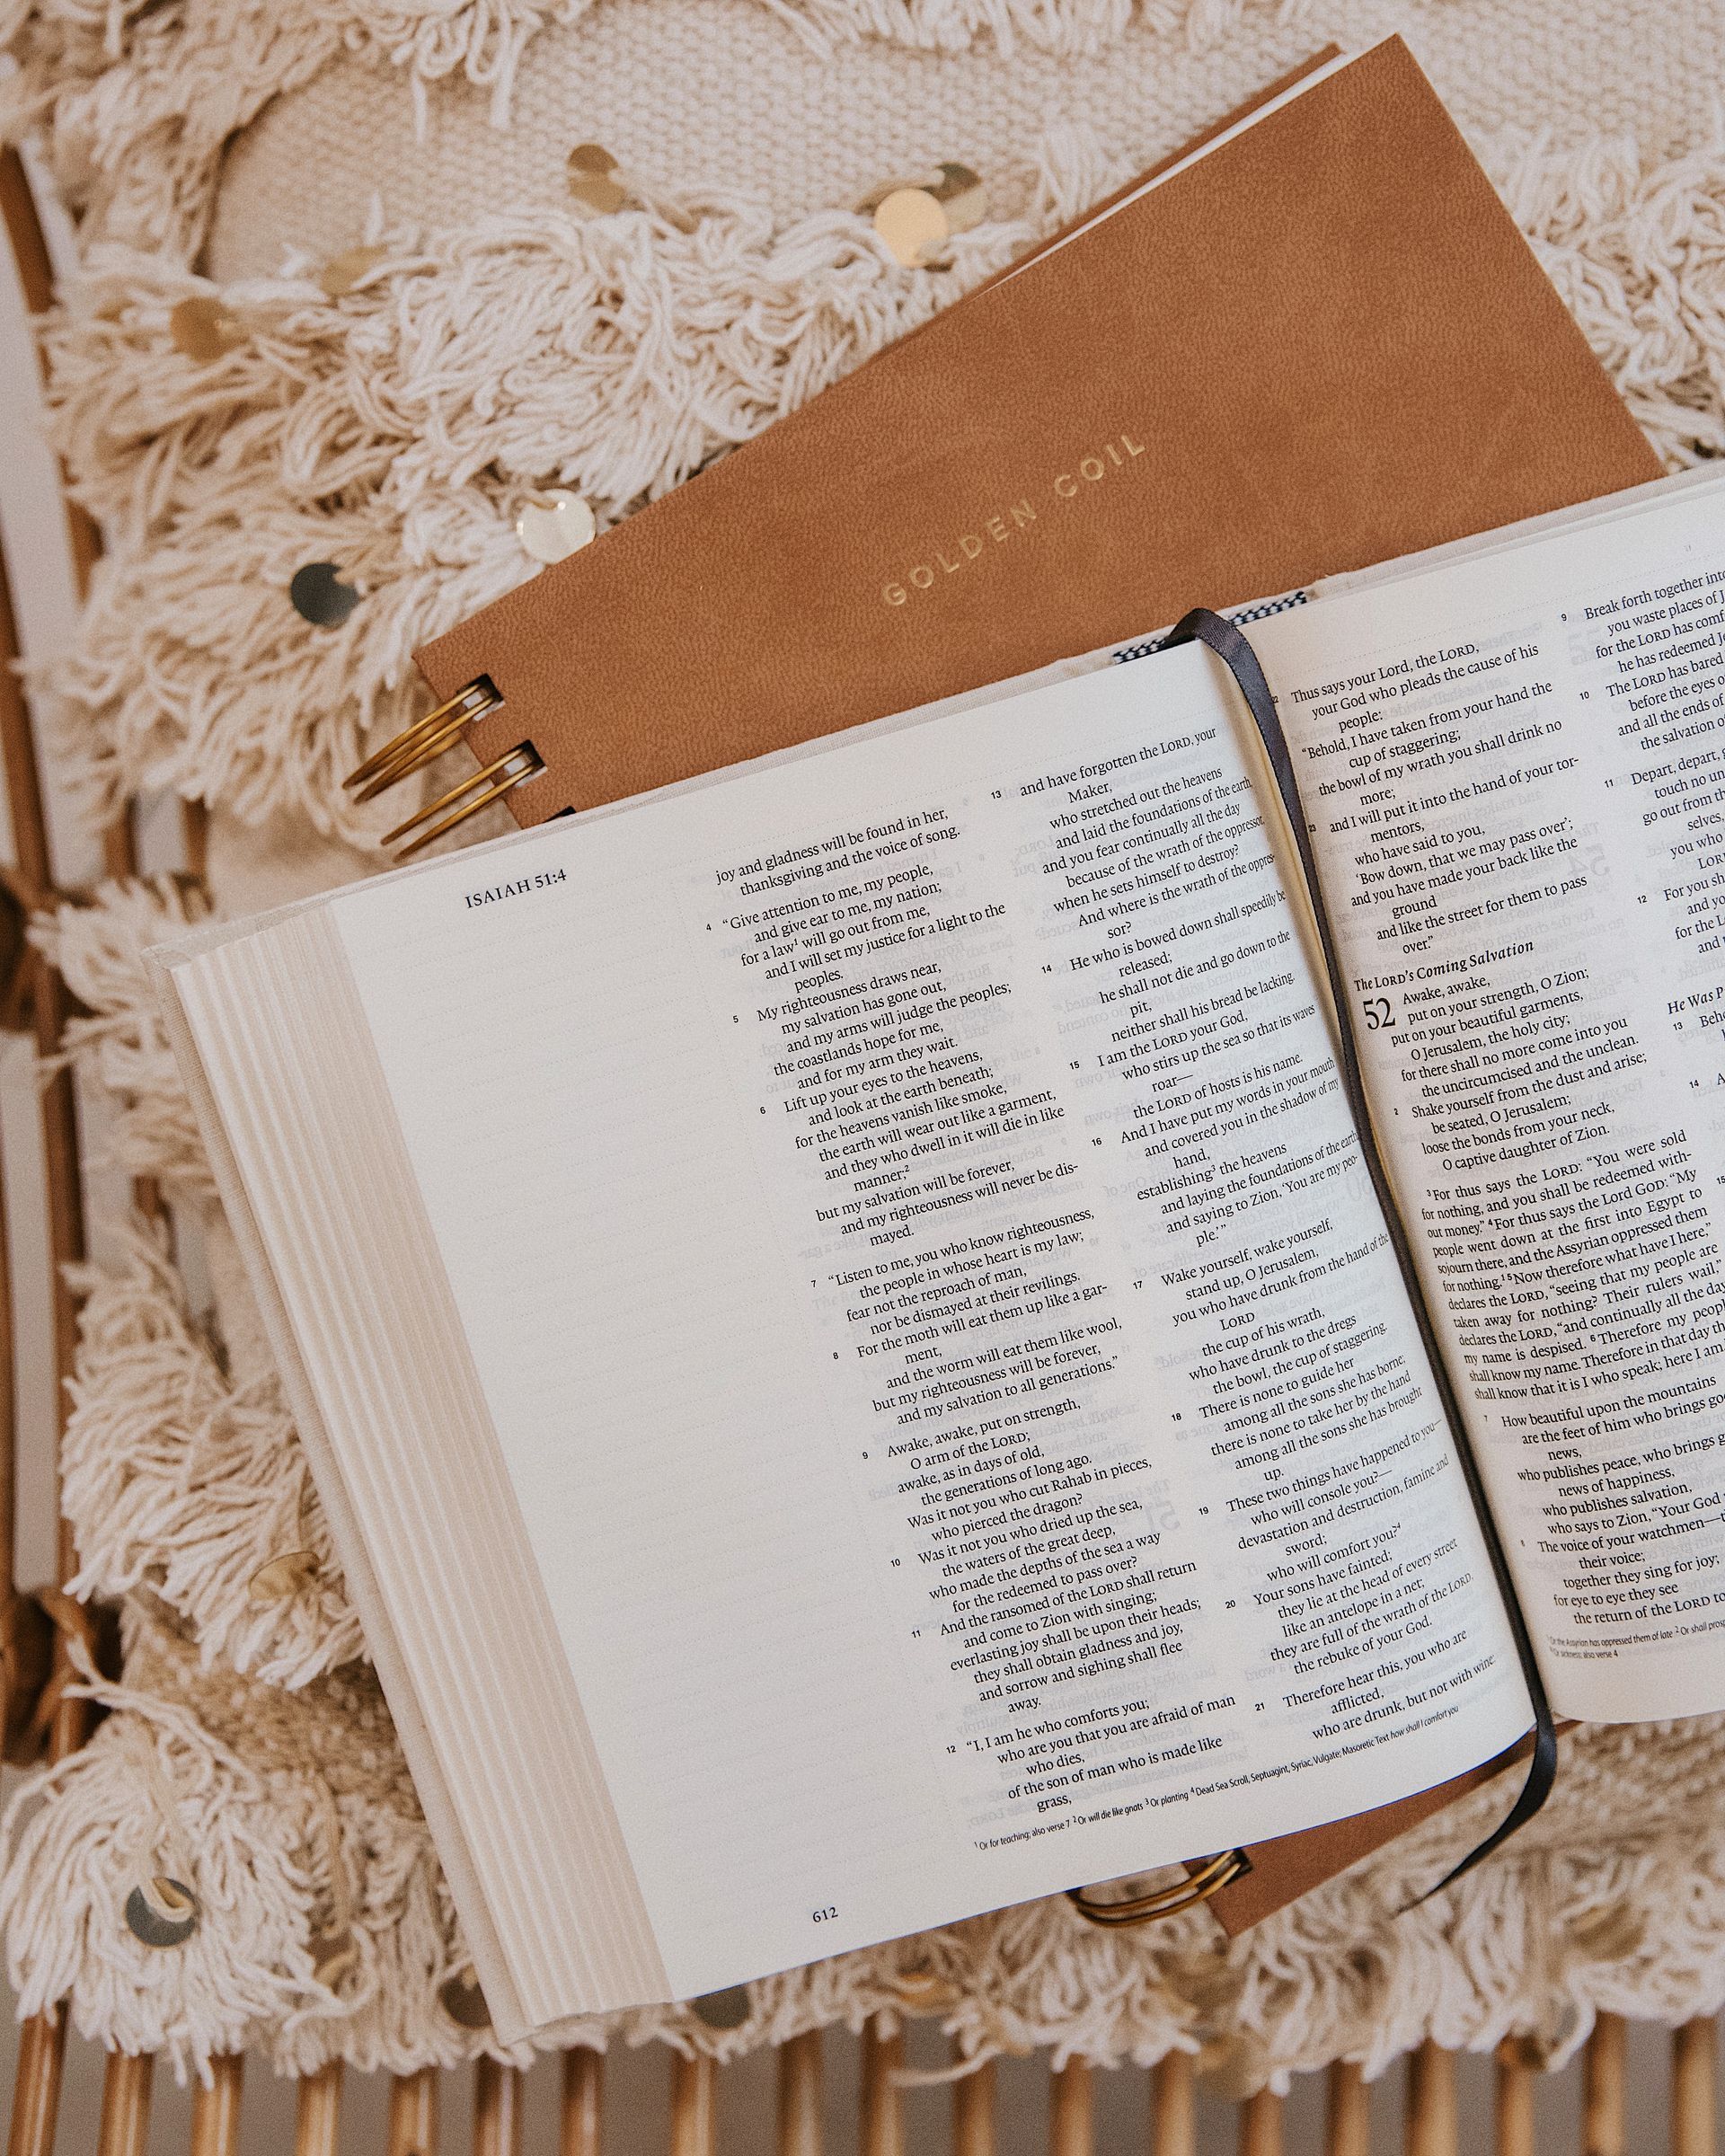 GOLDEN COIL
ISAIAH 51:4
joy and gladness will be found in her,
thanksgiving and the voice of song.
4 “Give attention to me, my people,
and give ear to me, my nation;
for a law1 will go out from me,
and I will set my justice for a light to the
peoples.
5 My righteousness draws near,
my salvation has gone out,
and my arms will judge the peoples;
the coastlands hope for me,
and for my arm they wait.
6 Lift up your eyes to the heavens,
and look at the earth beneath;
for the heavens vanish like smoke,
the earth will wear out like a garment,
and they who dwell in it will die in like
manner;2
but my salvation will be forever,
and my righteousness will never be dis-
mayed.
7 “Listen to me, you who know righteousness,
the people in whose heart is my law;
fear not the reproach of man,
nor be dismayed at their revilings.
8 For the moth will eat them up like a gar-
ment,
and the worm will eat them like wool,
but my righteousness will be forever,
and my salvation to all generations.”
9 Awake, awake, put on strength,
O arm of the LORD;
awake, as in days of old,
the generations of long ago.
Was it not you who cut Rahab in pieces,
who pierced the dragon?
10 Was it not you who dried up the sea,
the waters of the great deep,
who made the depths of the sea a way
for the redeemed to pass over?
11 And the ransomed of the LORD shall return
and come to Zion with singing;
everlasting joy shall be upon their heads;
they shall obtain gladness and joy,
and sorrow and sighing shall flee
away.
12 “I, I am he who comforts you;
who are you that you are afraid of man
who dies,
of the son of man who is made like
grass,
13 and have forgotten the LORD, your
Maker,
who stretched out the heavens
and laid the foundations of the earth,
and you fear continually all the day
because of the wrath of the oppressor,
when he sets himself to destroy?
And where is the wrath of the oppres-
sor?
14 He who is bowed down shall speedily be
released;
he shall not die and go down to the
pit,
neither shall his bread be lacking.
15 I am the LORD your God,
who stirs up the sea so that its waves
roar—
the LORD of hosts is his name.
16 And I have put my words in your mouth
and covered you in the shadow of my
hand,
establishing3 the heavens
and laying the foundations of the earth,
and saying to Zion, ‘You are my peo-
ple.’”
17 Wake yourself, wake yourself,
stand up, O Jerusalem,
you who have drunk from the hand of the
LORD
the cup of his wrath,
who have drunk to the dregs
the bowl, the cup of staggering.
18 There is none to guide her
among all the sons she has borne;
there is none to take her by the hand
among all the sons she has brought
up.
19 These two things have happened to you—
who will console you?—
devastation and destruction, famine and
sword;
who will comfort you?4
20 Your sons have fainted;
they lie at the head of every street
like an antelope in a net;
they are full of the wrath of the LORD,
the rebuke of your God.
21 Therefore hear this, you who are
afflicted,
who are drunk, but not with wine:
1 Or for teaching; also verse 7 2 Or will die like gnats 3 Or planting 4 Dead Sea Scroll, Septuagint, Syriac, Vulgate; Masoretic Text how shall I comfort you
612
22 Thus says your Lord, the LORD,
your God who pleads the cause of his
people:
“Behold, I have taken from your hand the
cup of staggering;
the bowl of my wrath you shall drink no
more;
23 and I will put it into the hand of your tor-
mentors,
who have said to you,
‘Bow down, that we may pass over’;
and you have made your back like the
ground
and like the street for them to pass
over.”
The LORD’s Coming Salvation
52 Awake, awake,
put on your strength, O Zion;
put on your beautiful garments,
O Jerusalem, the holy city;
for there shall no more come into you
the uncircumcised and the unclean.
2 Shake yourself from the dust and arise;
be seated, O Jerusalem;
loose the bonds from your neck,
O captive daughter of Zion.
3 For thus says the LORD: “You were sold
for nothing, and you shall be redeemed with-
out money.” 4 For thus says the Lord GOD: “My
people went down at the first into Egypt to
sojourn there, and the Assyrian oppressed them
for nothing.1 5 Now therefore what have I here,”
declares the LORD, “seeing that my people are
taken away for nothing? Their rulers wail,”
declares the LORD, “and continually all the day
my name is despised. 6 Therefore my people
shall know my name. Therefore in that day they
shall know that it is I who speak; here I am.”
7 How beautiful upon the mountains
are the feet of him who brings good
news,
who publishes peace, who brings good
news of happiness,
who publishes salvation,
who says to Zion, “Your God
8 The voice of your watchmen—
their voice;
together they sing for joy;
for eye to eye they see
the return of the LORD to
9 Break forth together into
you waste places of
for the LORD has
he has redeemed
10 The LORD has bared
before the eyes
and all the ends of
the salvation of
11 Depart, depart,
touch no
go out from the
selves,
you who
12 For you
and
for the
and
He Was
13
14
15
1 Or the Assyrian has oppressed them of late 2 Or shall
also verse 4